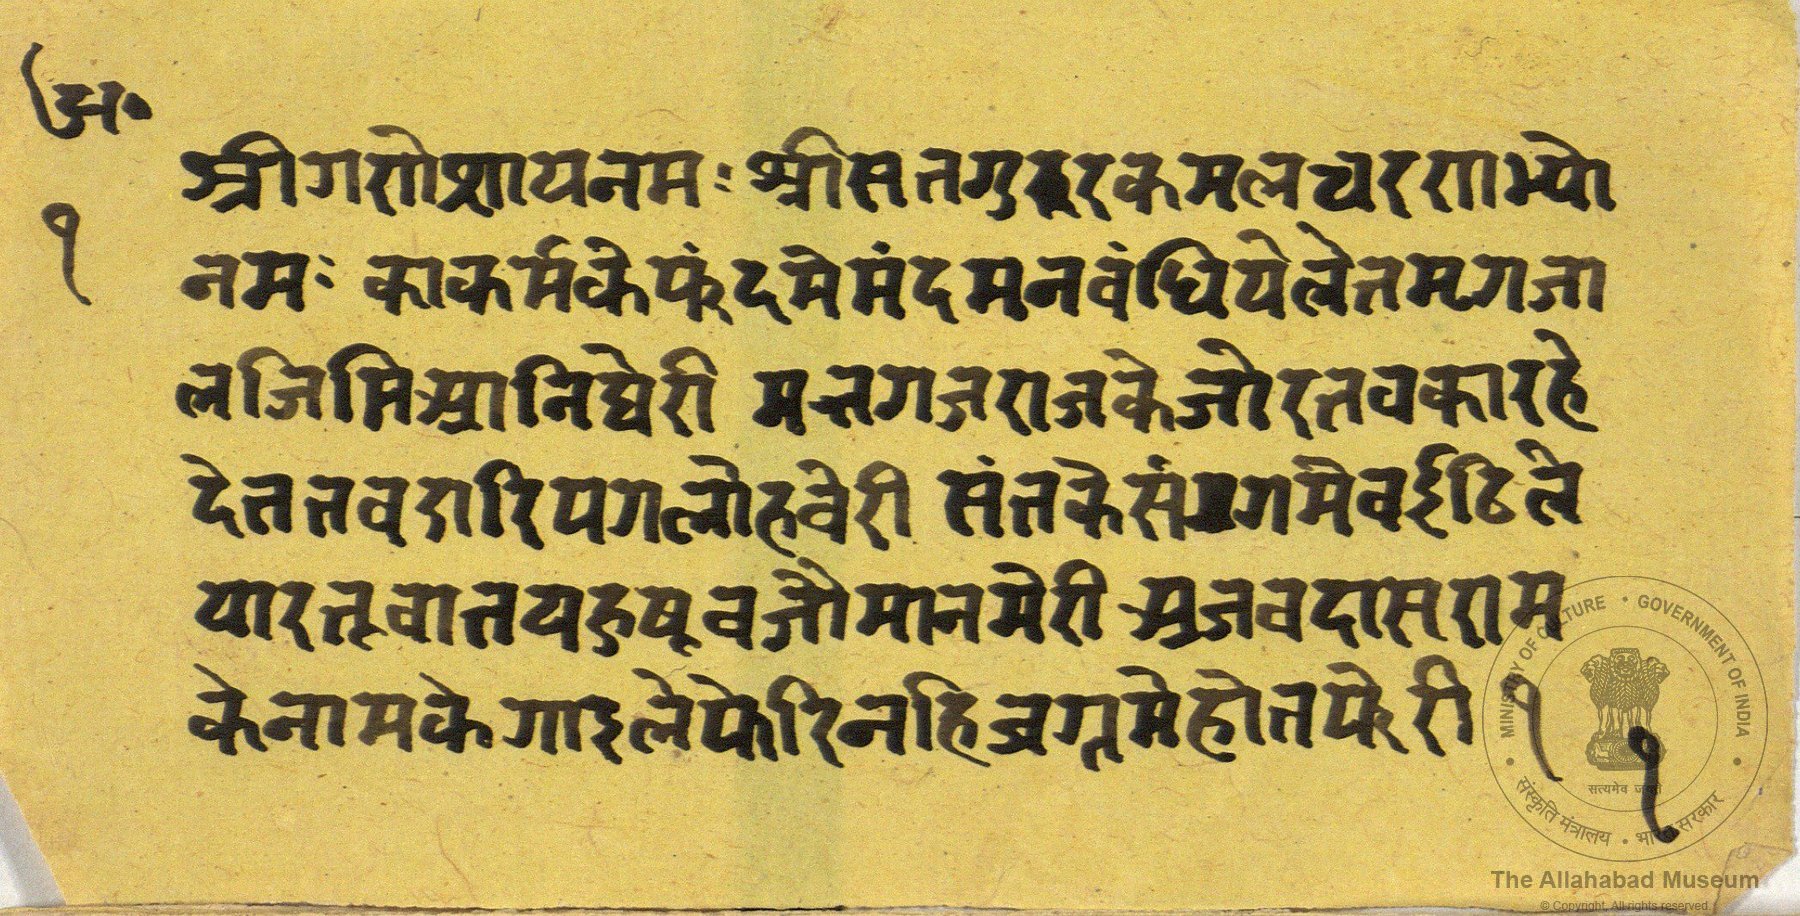 अ॰
१
श्रीगणेशायनमः श्रीसतगुरुरकमलचरणाभ्यो
नमः काकर्मकेफंदमेमंदमनवंधियेलेतमृगजा
लजिमिआनिघेरी मत्तगजराजकेजोरतवकारहे
देततवदारिपगलोहवेरी संतकेसंगमेवईठिले
यारतूवातयहषूवजौमानमेरी अजवदासराम
केनामकेगाइलेफेरिनहिजग्तमेहोतफेरी १
१
MINISTRY OF CULTURE • GOVERNMENT OF INDIA
सत्यमेव जयते
संस्कृति मंत्रालय • भारत सरकार
The Allahabad Museum
© Copyright, All rights reserved